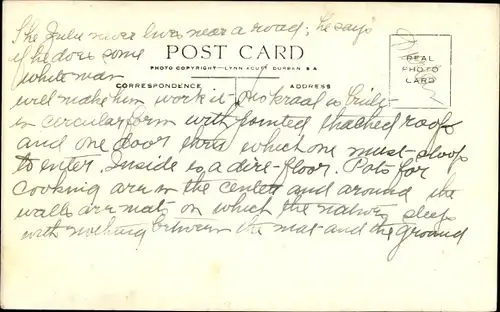 The Zulu never lives near a road; he says
if he does some
white man
POST CARD
PHOTO COPYRIGHT—LYNN ACUTT DURBAN S A
REAL
PHOTO
CARD
CORRESPONDENCE
ADDRESS
will make him work it. His kraal is built
in circular form with pointed thached roof
and one door thru which one must stoop
to enter. Inside is a dirt-floor. Pots for
cooking are in the center and around the
walls are mats on which the natives sleep
with nothing between the mat and the ground